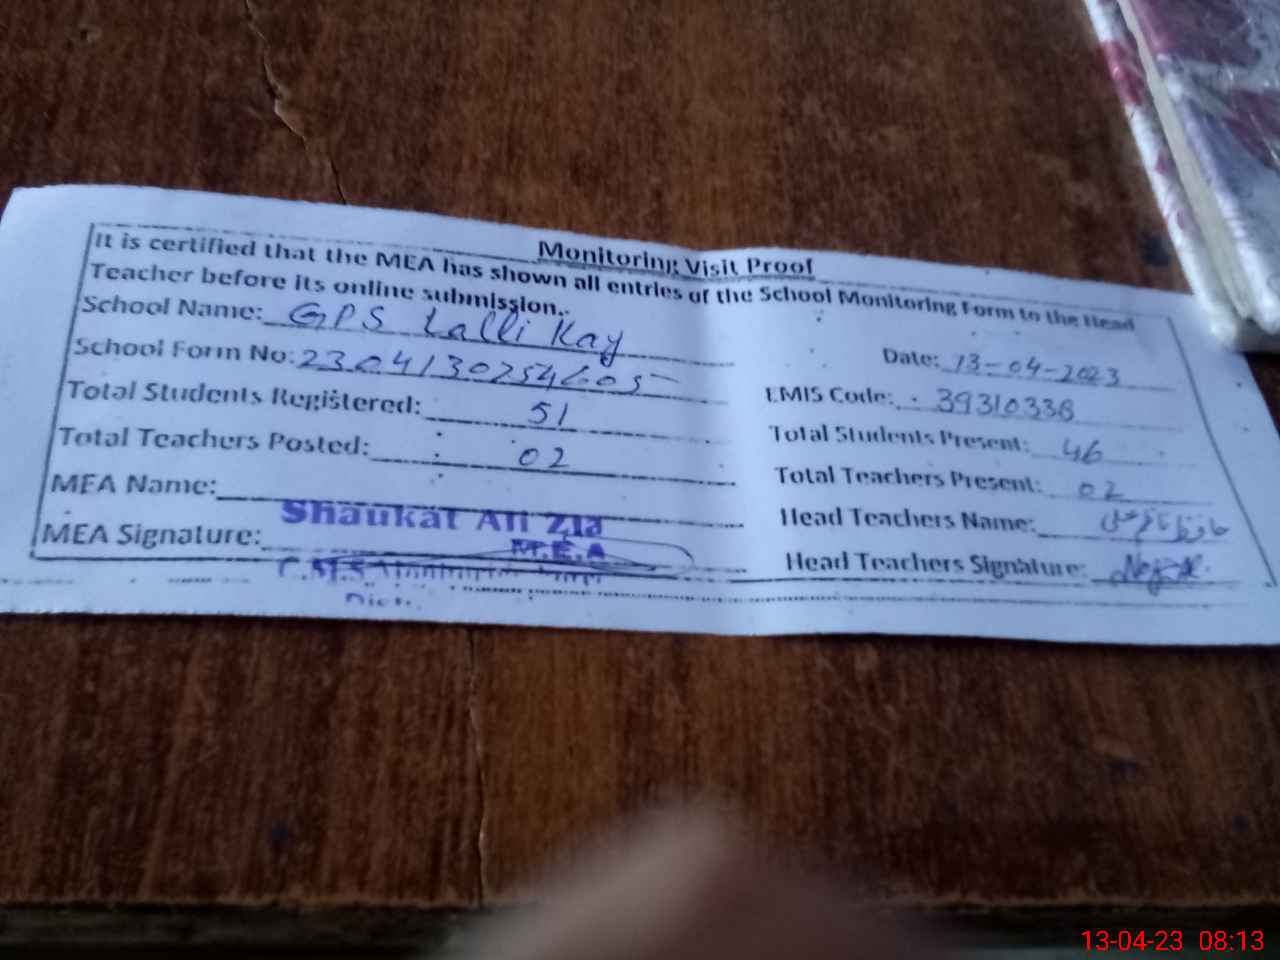 Monitoring Visit Proof
It is certified that the MEA has shown all entries of the School Monitoring Form to the Head
Teacher before its online submission.
School Name: GPS Lalli Kay
Date: 13-04-2023
School Form No: 2304130254605
EMIS Code: 39310338
Total Students Registered: 51
Total Students Present: 46
Total Teachers Posted: 02
Total Teachers Present: 02
MEA Name:
Shaukat Ali Zia
Head Teachers Name:
MEA Signature:
M.E.A
Head Teachers Signature:
13-04-23 08:13